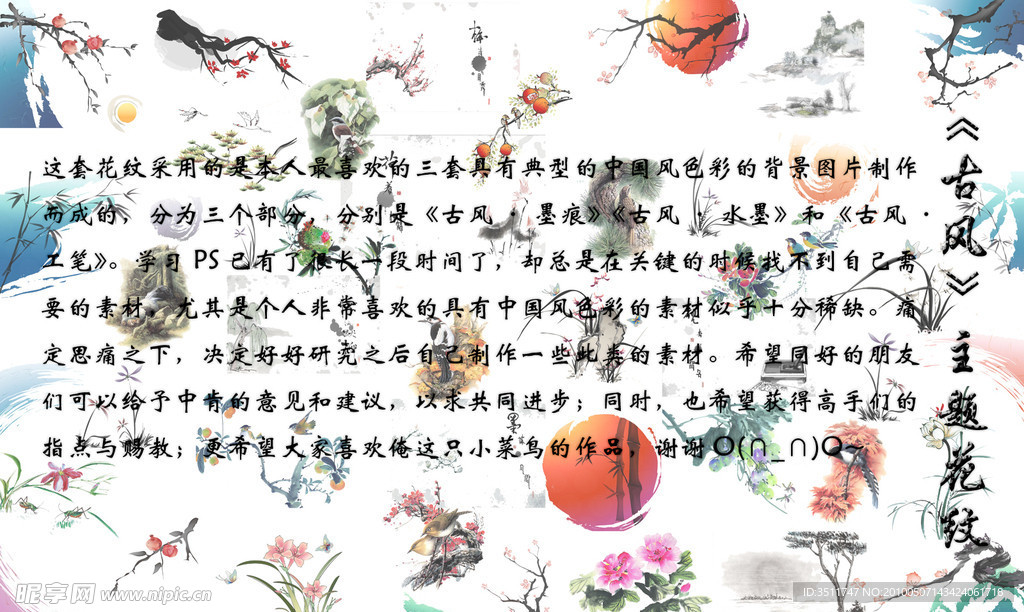 《古风》主题花纹
这套花纹采用的是本人最喜欢的三套具有典型的中国风色彩的背景图片制作
而成的，分为三个部分，分别是《古风·墨痕》《古风·水墨》和《古风·
工笔》。学习PS已有了很长一段时间了，却总是在关键的时候找不到自己需
要的素材，尤其是个人非常喜欢的具有中国风色彩的素材似乎十分稀缺。痛
定思痛之下，决定好好研究之后自己制作一些此类的素材。希望同好的朋友
们可以给予中肯的意见和建议，以求共同进步；同时，也希望获得高手们的
指点与赐教；更希望大家喜欢俺这只小菜鸟的作品，谢谢O(∩_∩)O~
梅
昵享网 www.nipic.cn
ID:3511747 NO:20100507143424061718